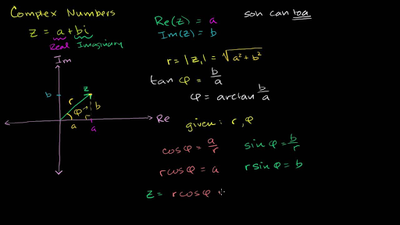 Complex Numbers
z = a + bi
Real Imaginary
Im
z
b
r
b
φ
a
a
Re
Re(z) = a
Im(z) = b
r = |z₁| = √a² + b²
tan φ = b/a
φ = arctan b/a
given: r, φ
cos φ = a/r
sin φ = b/r
r cos φ = a
r sin φ = b
z = r cos φ